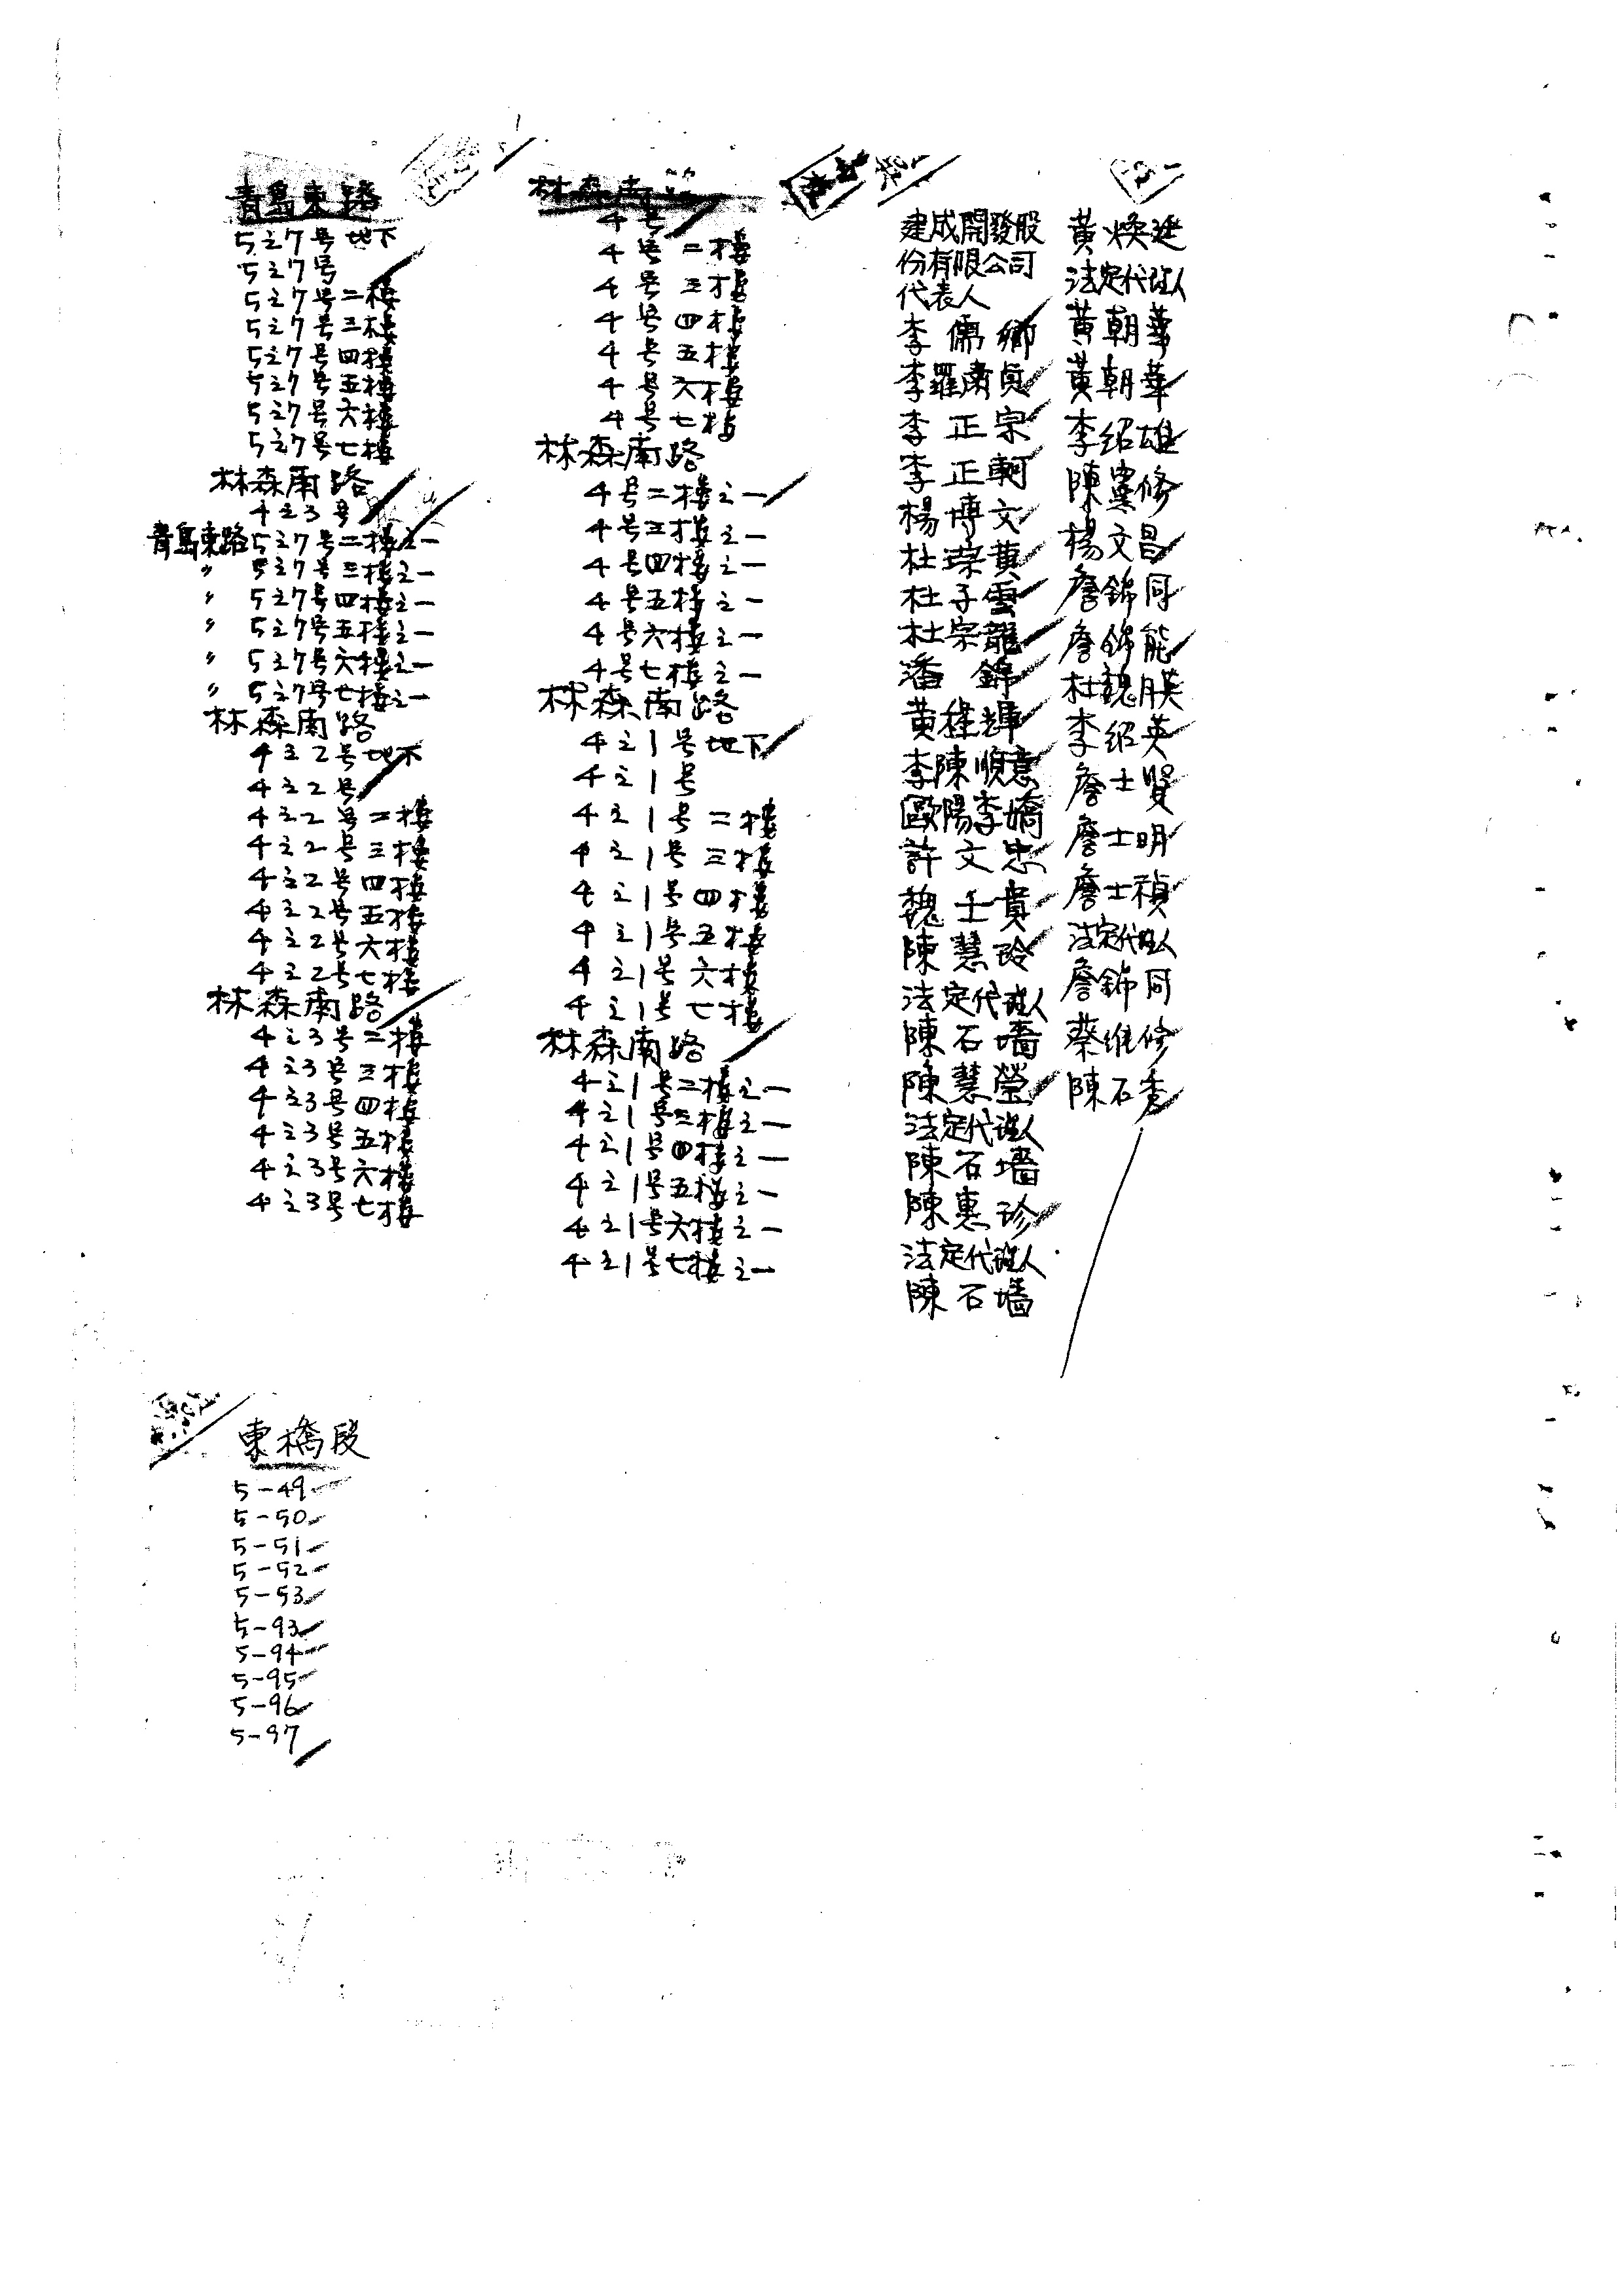 青島東路
5之7号地下
5之7号
5之7号二楼
5之7号三楼
5之7号四楼
5之7号五楼
5之7号六楼
5之7号七楼
林森南路
4之3号
青島東路5之7号二楼之一
〃 5之7号三楼之一
〃 5之7号四楼之一
〃 5之7号五楼之一
〃 5之7号六楼之一
〃 5之7号七楼之一
林森南路
4之2号地下
4之2号
4之2号二楼
4之2号三楼
4之2号四楼
4之2号五楼
4之2号六楼
4之2号七楼
林森南路
4之3号二楼
4之3号三楼
4之3号四楼
4之3号五楼
4之3号六楼
4之3号七楼
林森南路
4号
4号二楼
4号三楼
4号四楼
4号五楼
4号六楼
4号七楼
林森南路
4号二楼之一
4号三楼之一
4号四楼之一
4号五楼之一
4号六楼之一
4号七楼之一
林森南路
4之1号地下
4之1号
4之1号二楼
4之1号三楼
4之1号四楼
4之1号五楼
4之1号六楼
4之1号七楼
林森南路
4之1号二楼之一
4之1号三楼之一
4之1号四楼之一
4之1号五楼之一
4之1号六楼之一
4之1号七楼之一
建成開發股
份有限公司
代表人
李儒鄉
李羅肅貞
李正宗
李正軻
楊博文
杜琮黃
杜子雲
杜宗龍
潘錦
黃程輝
李陳順意
歐陽李嬌
許文忠
魏壬貴
陳慧玲
法定代理人
陳石墻
陳慧瑩
法定代理人
陳石墻
陳惠珍
法定代理人
陳石墻
黃煥延
法定代理人
黃朝華
黃朝華
李紹雄
陳憲修
楊文昌
詹錦同
詹錦能
杜魏朕
李紹英
詹士賢
詹士明
詹士禎
法定代理人
詹錦同
蔡維修
陳石秀
東橋段
5-49
5-50
5-51
5-52
5-53
5-93
5-94
5-95
5-96
5-97